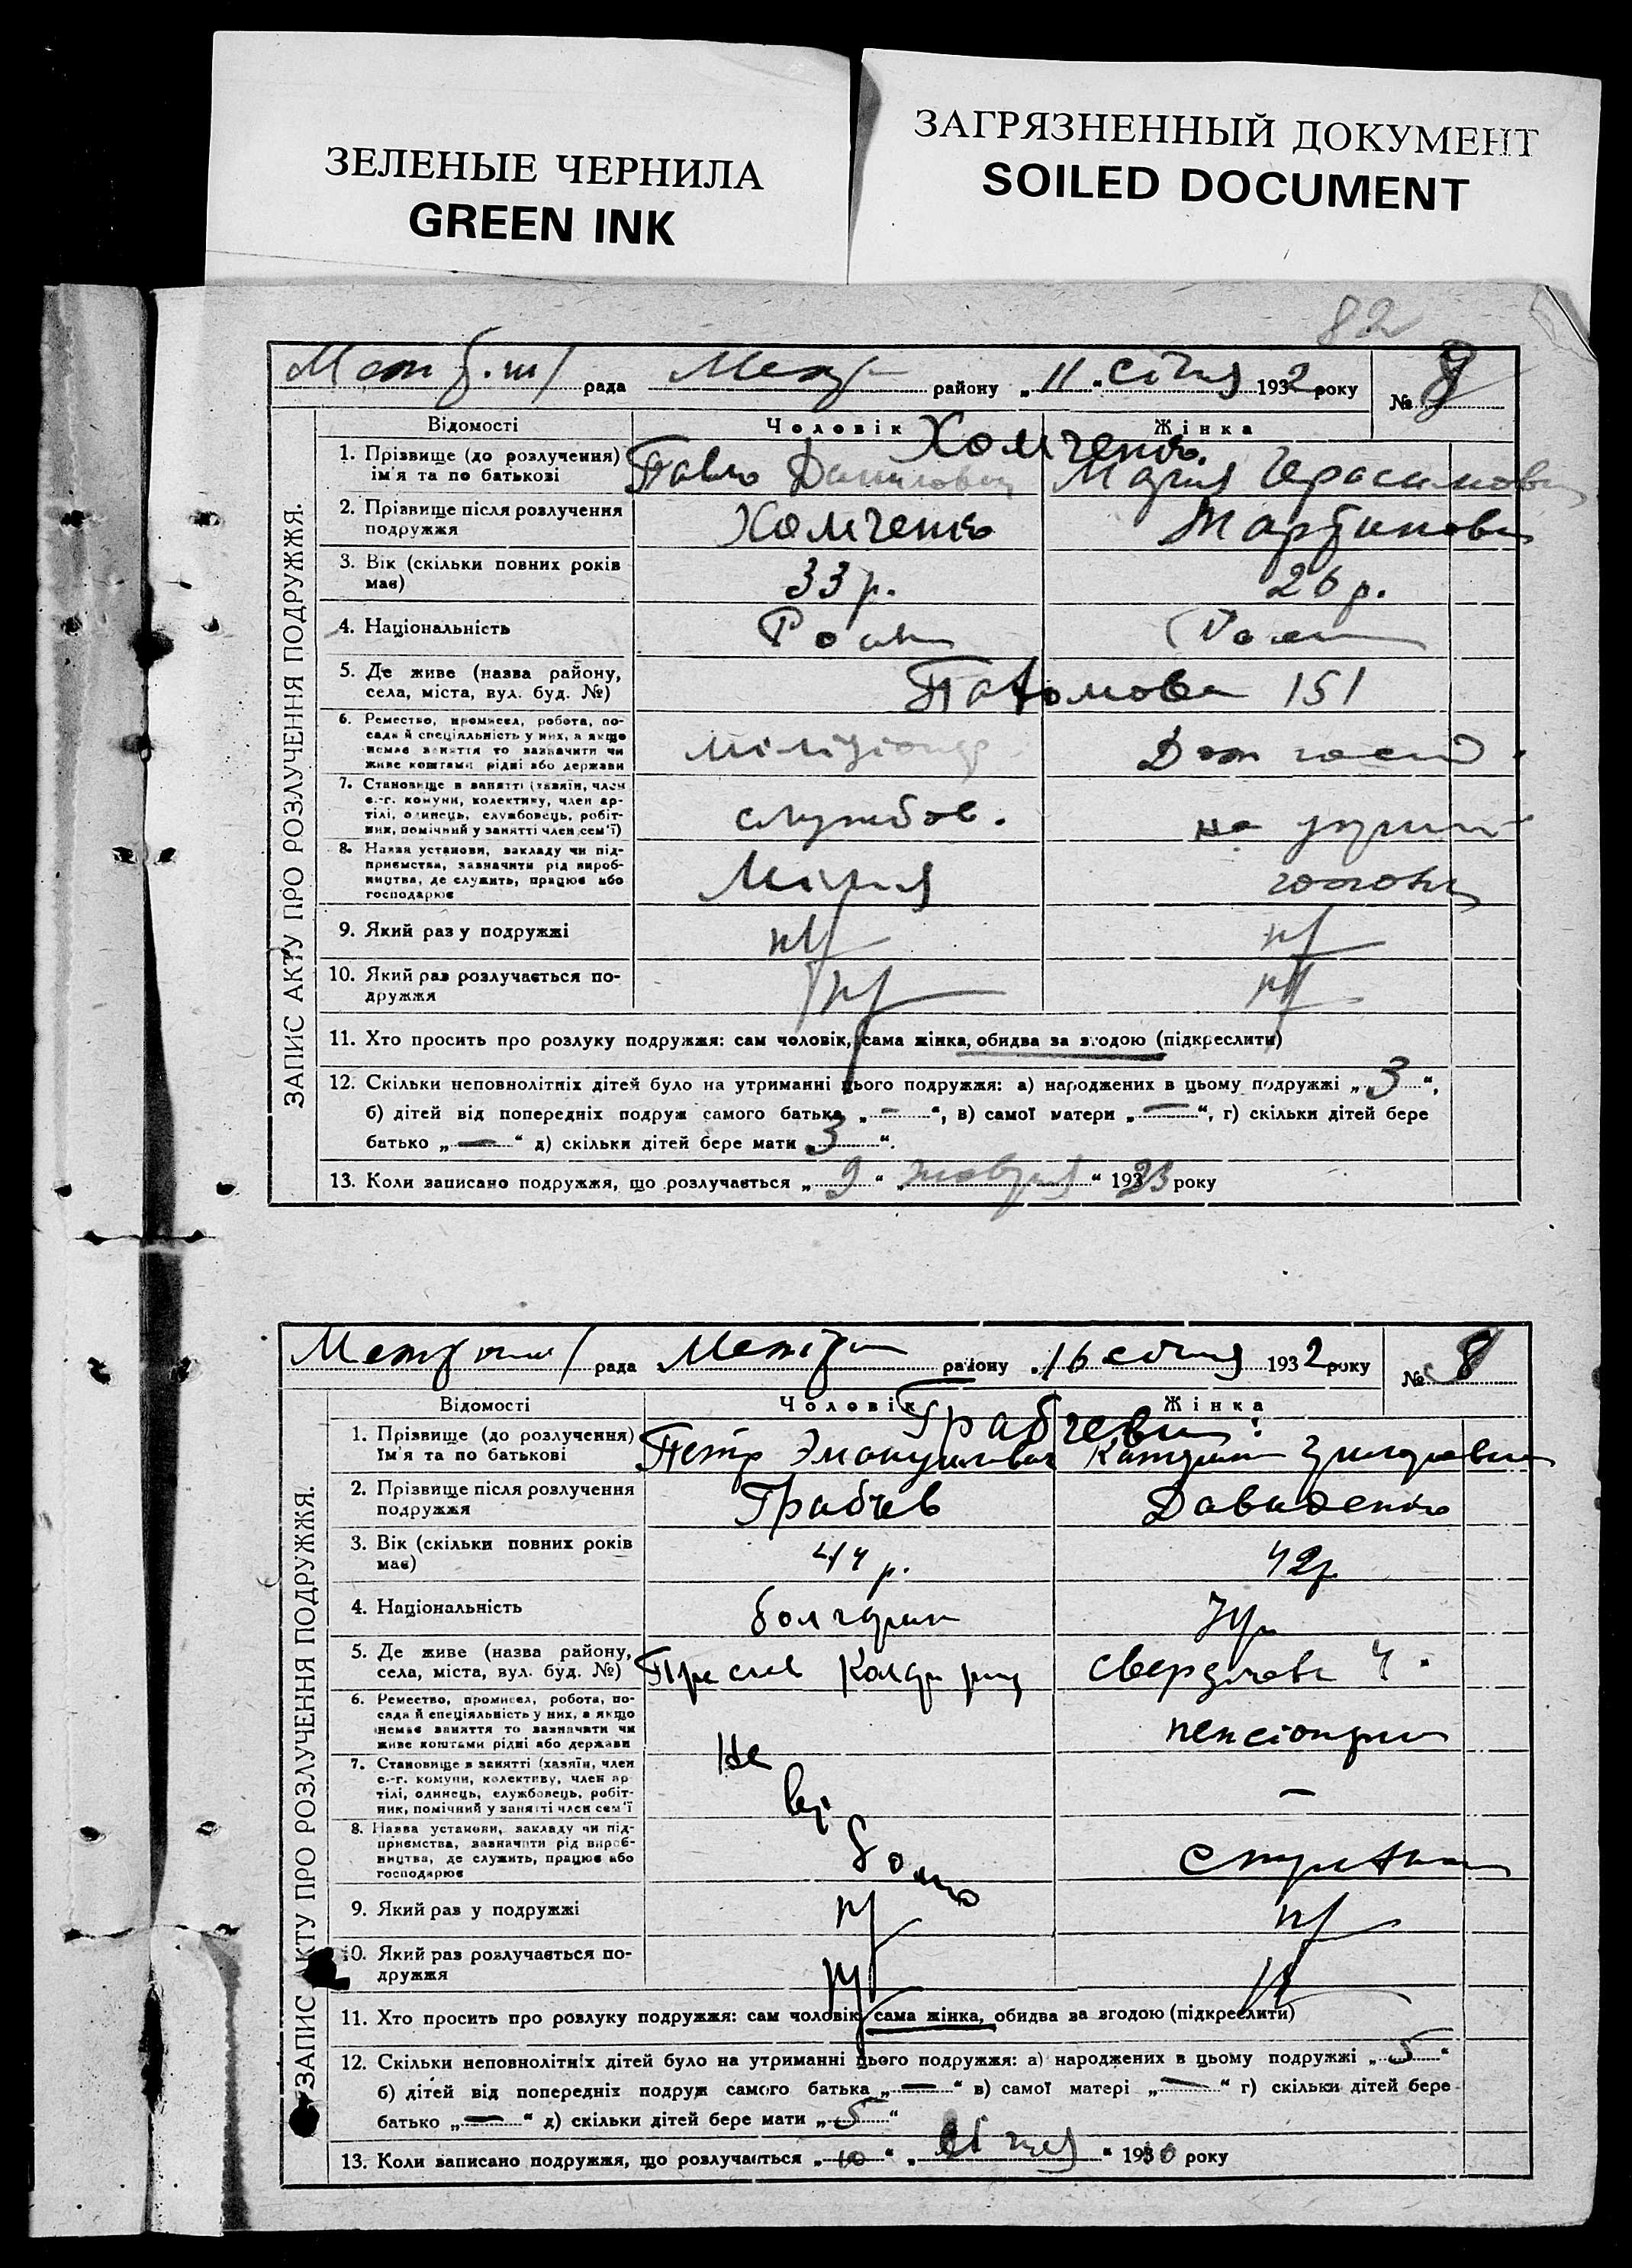 ЗЕЛЕНЫЕ ЧЕРНИЛА
GREEN INK
ЗАГРЯЗНЕННЫЙ ДОКУМЕНТ
SOILED DOCUMENT
82
рада району „11“ січня 1932 року №
ЗАПИС АКТУ ПРО РОЗЛУЧЕННЯ ПОДРУЖЖЯ.
Відомості Чоловік Жінка
Хомченко
1. Прізвище (до розлучення) Павло Данилович Мария Герасимовн
ім'я та по батькові
2. Прізвище після розлучення Хомченко Мартинова
подружжя
3. Вік (скільки повних років 33 р. 26 р.
має)
4. Національність
5. Де живе (назва району, 151
села, міста, вул. буд. №)
6. Ремество, промисел, робота, по-
сада й спеціяльність у них, а якщо
немає заняття то зазначити чи Дом госп
живе коштами рідні або держави
7. Становище в занятті (хазяїн, член
с.-г. комуни, колективу, член ар- службов.
тілі, одинець, службовець, робіт- на утрим
ник, помічний у занятті член сем'ї)
8. Назва установи, закладу чи під-
приємства, зазначити рід вироб-
ництва, де служить, працює або
господарює
9. Який раз у подружжі
10. Який раз розлучається по-
дружжя
11. Хто просить про розлуку подружжя: сам чоловік, сама жінка, обидва за згодою (підкреслити)
12. Скільки неповнолітніх дітей було на утриманні цього подружжя: а) народжених в цьому подружжі „3“,
б) дітей від попередніх подруж самого батька „—“, в) самої матери „—“, г) скільки дітей бере
батько „—“ д) скільки дітей бере мати „3“.
13. Коли записано подружжя, що розлучається „9“ „жовтня“ 1923 року
рада району „16 січня 1932 року № 8
ЗАПИС АКТУ ПРО РОЗЛУЧЕННЯ ПОДРУЖЖЯ.
Відомості Чоловік Жінка
Грабчеви
1. Прізвище (до розлучення) Петр Эмануилович
Ім'я та по батькові
2. Прізвище після розлучення Грабчев Давиденко
подружжя
3. Вік (скільки повних років 44 р. 42 р
має)
4. Національність болгарин Укр
5. Де живе (назва району, Свердлова 4
села, міста, вул. буд. №)
6. Ремество, промисел, робота, по-
сада й спеціяльність у них, а якщо
немає заняття то зазначити чи пенсіонерка
живе коштами рідні або держави Не
7. Становище в занятті (хазяїн, член
с.-г. комуни, колективу, член ар- —
тілі, одинець, службовець, робіт-
ник, помічний у занятті член сем'ї
8. Назва установи, закладу чи під-
приємства, зазначити рід вироб-
ництва, де служить, працює або
господарює
9. Який раз у подружжі
10. Який раз розлучається по-
дружжя
11. Хто просить про розлуку подружжя: сам чоловік, сама жінка, обидва за згодою (підкреслити)
12. Скільки неповнолітніх дітей було на утриманні цього подружжя: а) народжених в цьому подружжі „5“
б) дітей від попередніх подруж самого батька „—“ в) самої матері „—“ г) скільки дітей бере
батько „—“ д) скільки дітей бере мати „5“
13. Коли записано подружжя, що розлучається „10“ „січня“ 1910 року